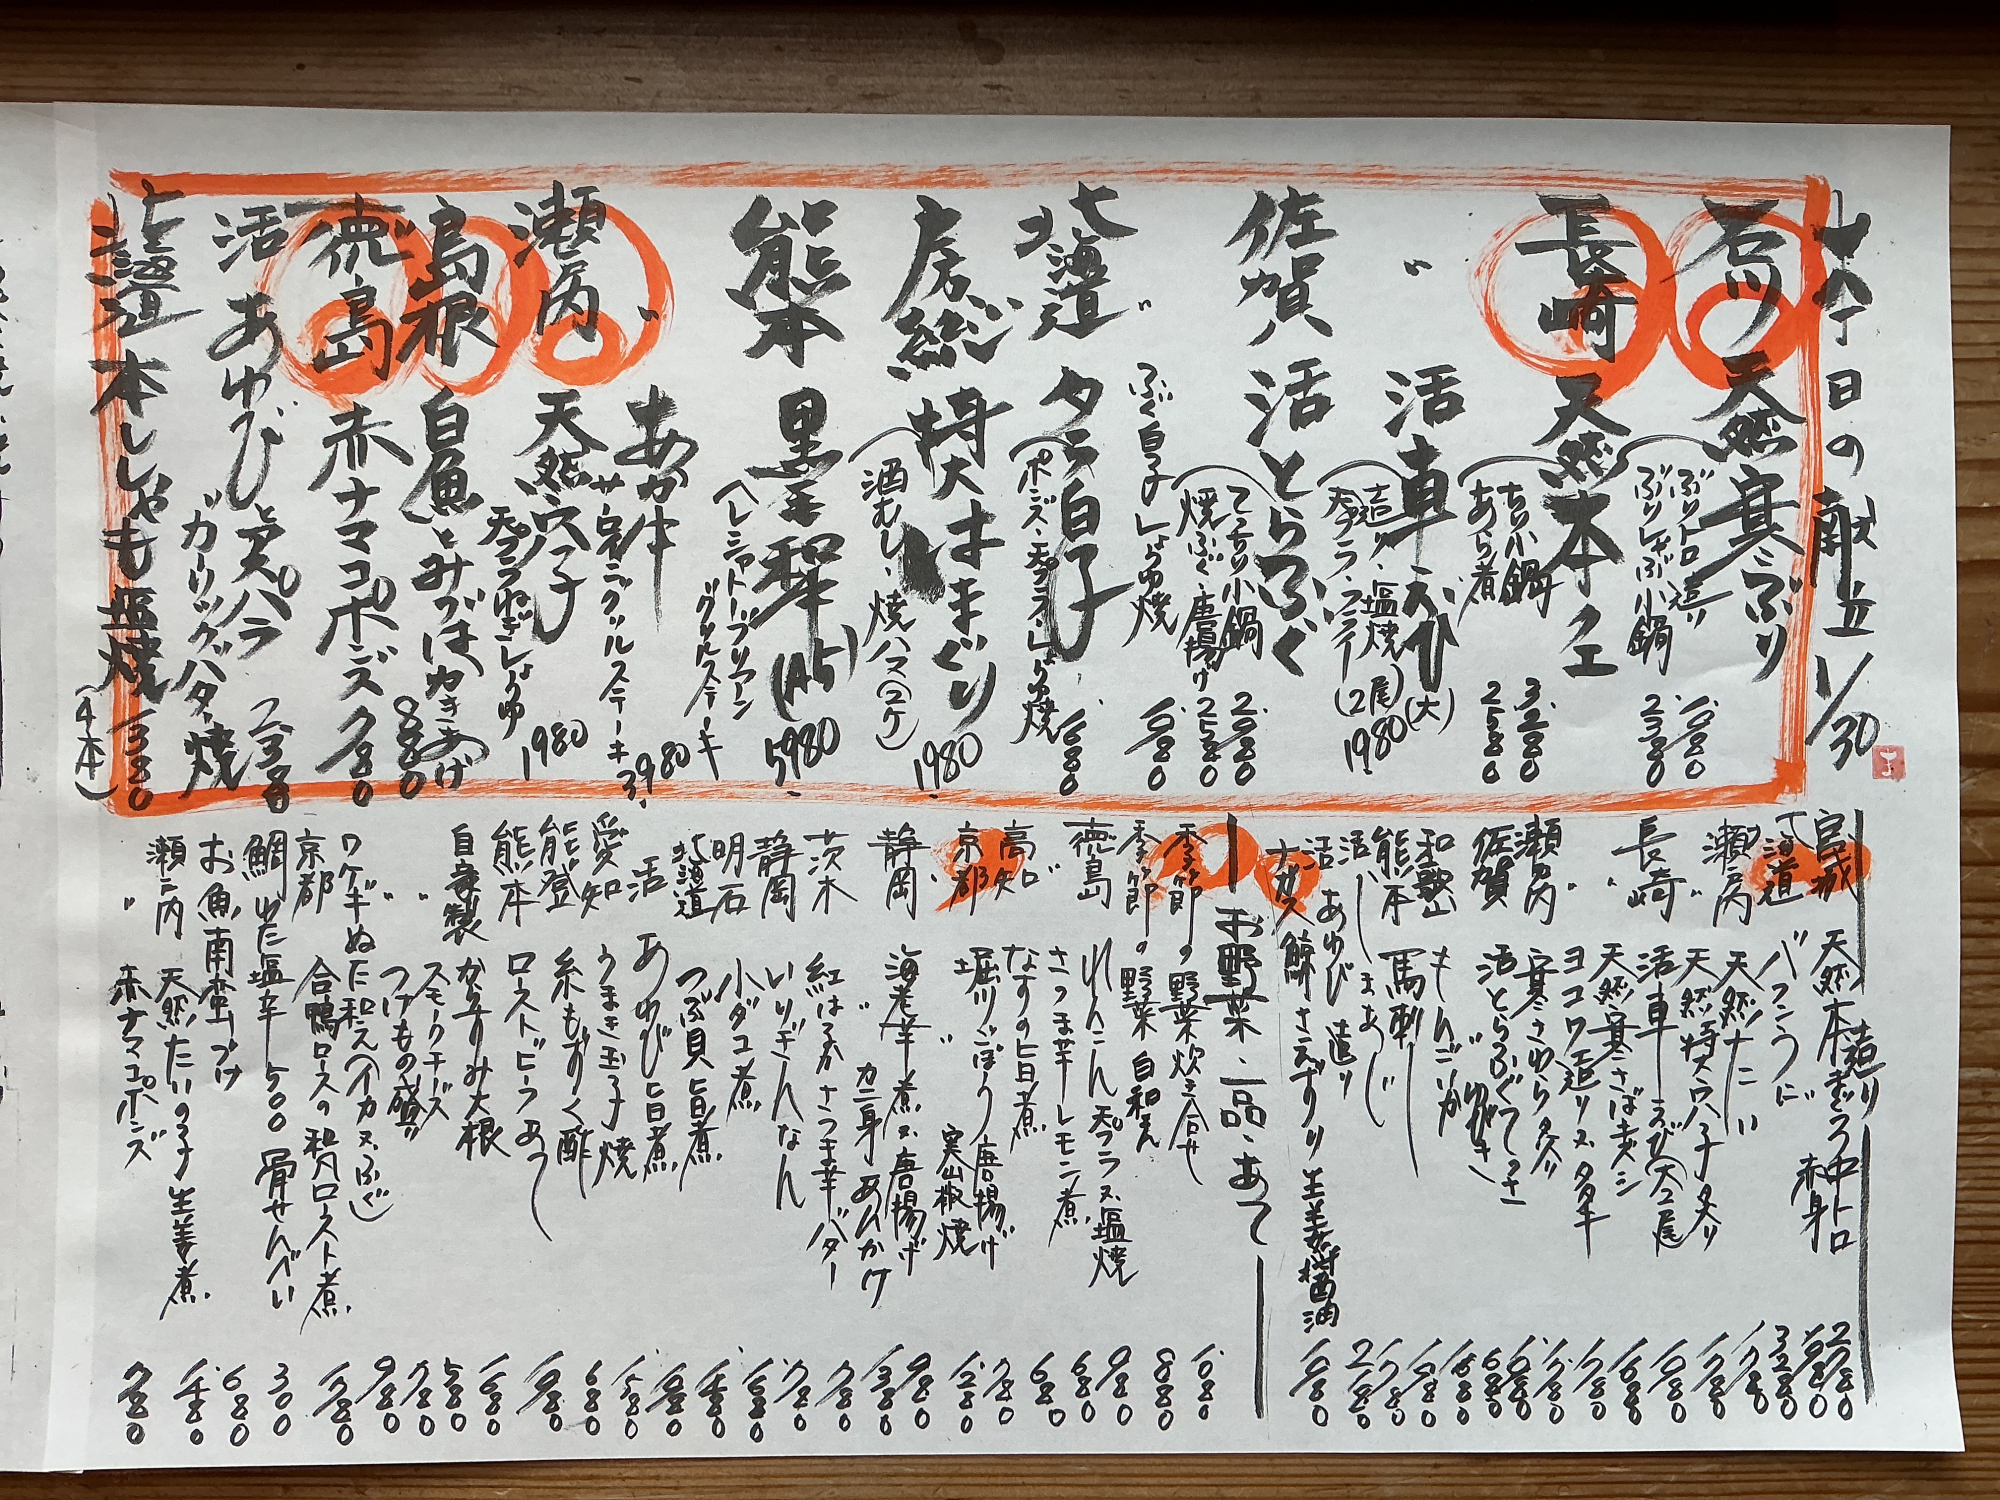 今日の献立 1/30
石川 天然寒ぶり
ぶりトロ造り 1.080
ぶりしゃぶ小鍋 2.380
長崎 天然本クエ
ちり小鍋 3.280
あら煮 2.580
〃 活車えび(大)
造り・塩焼
天プラ・フライ (2尾) 1.980
佐賀 活とらふぐ
てっちり小鍋 2.980
焼ふぐ・唐揚げ 2.580
〃 ふぐ白子 しょうゆ焼
北海道 タラ白子
ポンズ・天プラ・しょうゆ焼 1.680
房総 特大はまぐり 1.980
酒むし・焼ハマ(2ケ)
熊本 黒毛和牛(A5) 5.980
(ヘレシャトーブリアン
グリルステーキ
〃 あか牛 3.980
サーロイングリルステーキ
瀬戸内 天然穴子 1.980
天プラねぎしょうゆ
島根 白魚とみつばかきあげ 880
徳島 赤ナマコポンズ 780
活 あわびとアスパラ 2.380
ガーリックバター焼
北海道 本ししゃも塩焼 1.380
(4本)
造り
宮城 天然本まぐろ 中トロ
赤身
北海道 バフンうに
瀬戸内 天然たい
〃 天然特大穴子炙り
長崎 活車えび(大)2尾
〃 天然寒さば きずし
ヨコワ造り又タタキ
瀬戸内 寒さわら炙り
佐賀 活とらふぐてっさ
〃 ゆびき
和歌山 もんごいか
熊本 馬刺し
活〆 しまあじ
活 あわび 造り
ナガス 鯨さえずり 生姜醤油
お野菜・一品・あて
季節の野菜 炊き合せ 1.080
季節の野菜 白和え 880
徳島 れんこん 天プラ又塩焼 980
〃 さつま芋レモン煮 680
高知 なすの旨煮 680
京都 堀川ごぼう 唐揚げ 780
〃 実山椒焼
静岡 海老芋 煮又唐揚げ 980
〃 カニ身あんかけ 1.380
茨木 紅はるかさつま芋バター 780
静岡 いりぎんなん 780
明石 小ダコ煮
北海道 つぶ貝旨煮
活 あわび旨煮
愛知 うまき玉子焼
能登 糸もずく酢 680
熊本 ローストビーフあつし
自家製 からすみ大根
〃 スモークチーズ 580
〃 つけもの盛り 780
ワケギぬた和え(イカ又ふぐ) 980
京都 合鴨ロースの和風ロースト煮
鯛わた塩辛 500 骨せんべい 300
お魚南蛮づけ 680
瀬戸内 天然たいの子生姜煮
〃 赤ナマコポンズ 780